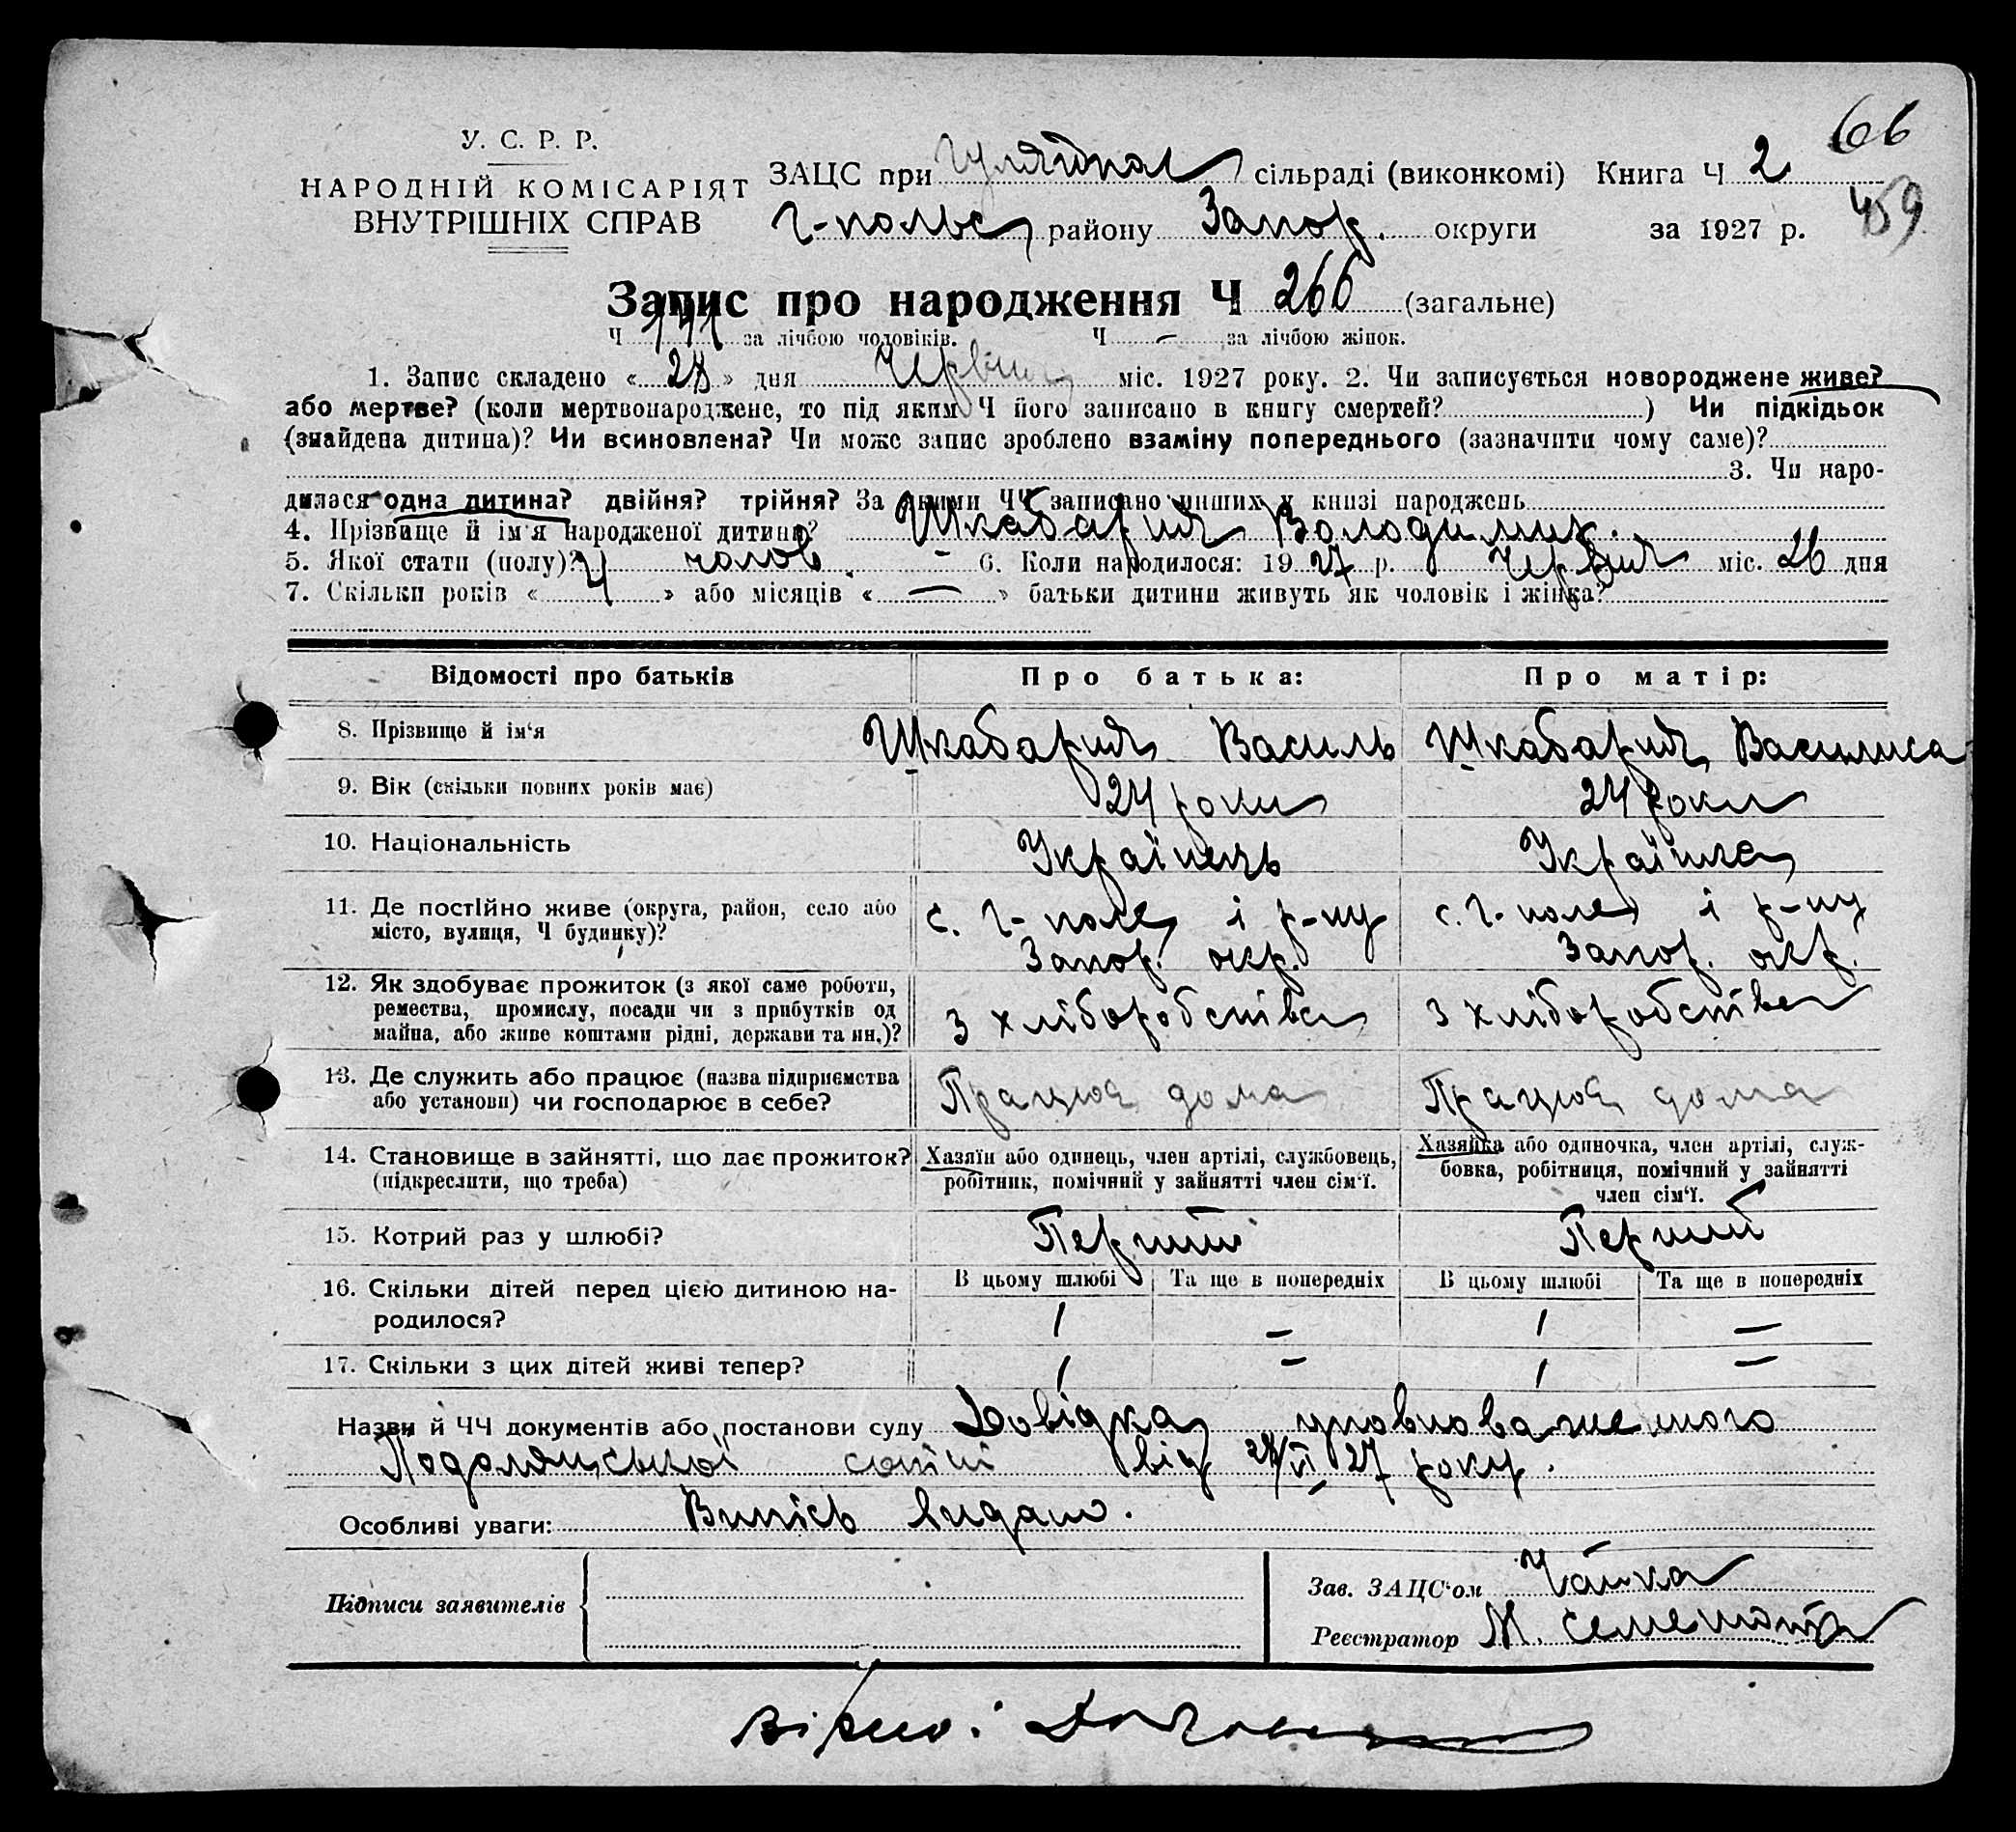 66
У. С. Р. Р.
НАРОДНІЙ КОМІСАРІЯТ
ВНУТРІШНІХ СПРАВ
ЗАЦС при Гуляйпол сільраді (виконкомі) Книга Ч 2
Г-польс району Запор. округи за 1927 р. 459
Запис про народження Ч 266 (загальне)
Ч 141 за лічбою чоловіків. Ч — за лічбою жінок.
1. Запис складено « 28 » дня Червня міс. 1927 року. 2. Чи записується новороджене живе?
або мертве? (коли мертвонароджене, то під яким Ч його записано в книгу смертей? ) Чи підкідьок
(знайдена дитина)? Чи всиновлена? Чи може запис зроблено взаміну попереднього (зазначити чому саме)?
3. Чи наро-
дилася одна дитина? двійня? трійня? За якими ЧЧ записано инших у книзі народжень
4. Прізвище й ім'я народженої дитини? Шкабарня Володимир.
5. Якої стати (полу)? чолов. – 6. Коли народилося: 19 27 р. Червня міс. 26 дня
7. Скільки років « 4 » або місяців « — » батьки дитини живуть як чоловік і жінка?
Відомості про батьків Про батька: Про матір:
8. Прізвище й ім'я Шкабарня Василь Шкабарня Василиса
9. Вік (скільки повних років має) 24 роки 24 роки
10. Національність Українець Українка
11. Де постійно живе (округа, район, село або
місто, вулиця, Ч будинку)?
с. Г-поле і р-ну
Запор. окр.
с. Г-поле і р-ну
Запор. окр.
12. Як здобуває прожиток (з якої саме роботи,
ремества, промислу, посади чи з прибутків од
майна, або живе коштами рідні, держави та ин.)?
з хліборобства з хліборобства
13. Де служить або працює (назва підприємства
або установи) чи господарює в себе?
Працює дома Працює дома
14. Становище в зайнятті, що дає прожиток?
(підкреслити, що треба)
Хазяїн або одинець, член артілі, службовець,
робітник, помічний у зайнятті член сім'ї.
Хазяйка або одиночка, член артілі, служ-
бовка, робітниця, помічний у зайнятті
член сім'ї.
15. Котрий раз у шлюбі? Перший Перший
16. Скільки дітей перед цією дитиною на-
родилося?
В цьому шлюбі Та ще в попередніх В цьому шлюбі Та ще в попередніх
1 – 1 —
17. Скільки з цих дітей живі тепер? 1 – 1 —
Назви й ЧЧ документів або постанови суду Довідка уповноваженого
Подолянської сотні від 28/VI 27 року.
Особливі уваги: Випісь видано.
Підписи заявителів
Зав. ЗАЦС'ом Чайка
Реєстратор М.
вірно: